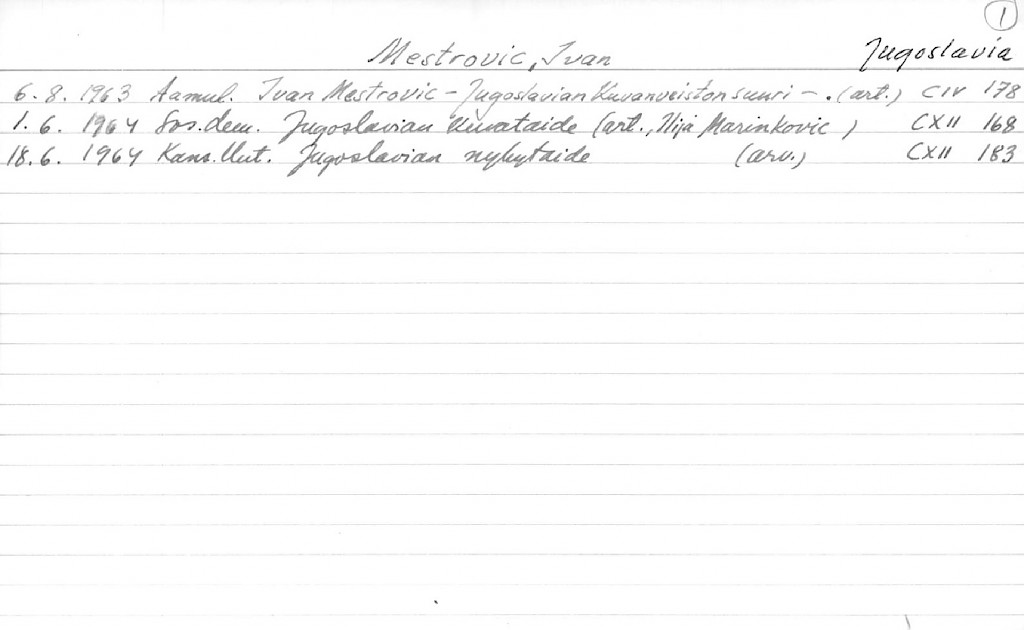 1
Mestrovic, Ivan Jugoslavia
6.8. 1963 Aamul. Ivan Mestrovic - Jugoslavian kuvanveiston suuri - . (art.) CIV 178
1.6. 1964 Sos.dem. Jugoslavian kuvataide (art., Ilija Marinkovic ) CXII 168
18.6. 1964 Kans.Uut. Jugoslavian nykytaide (arv.) CXII 183